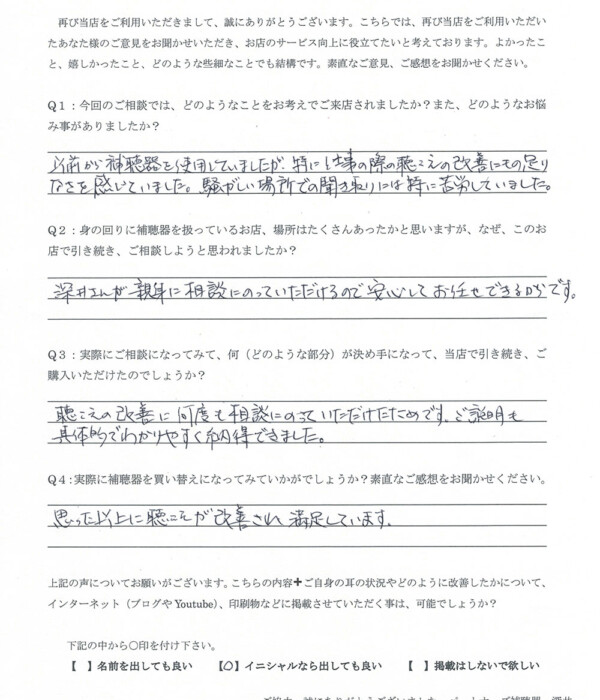 再び当店をご利用いただきまして、誠にありがとうございます。こちらでは、再び当店をご利用いただい
たあなた様のご意見をお聞かせいただき、お店のサービス向上に役立てたいと考えております。よかったこ
と、嬉しかったこと、どのような些細なことでも結構です。素直なご意見、ご感想をお聞かせください。
Q1：今回のご相談では、どのようなことをお考えでご来店されましたか？また、どのようなお悩
み事がありましたか？
以前から補聴器を使用していましたが、特に仕事の際の聴こえの改善にもの足り
なさを感じていました。騒がしい場所での聞き取りには特に苦労していました。
Q2：身の回りに補聴器を扱っているお店、場所はたくさんあったかと思いますが、なぜ、このお
店で引き続き、ご相談しようと思われましたか？
深井さんが親身に相談にのっていただけるので安心してお任せできるからです。
Q3：実際にご相談になってみて、何（どのような部分）が決め手になって、当店で引き続き、ご
購入いただけたのでしょうか？
聴こえの改善に何度も相談にのっていただけたためです。ご説明も
具体的でわかりやすく納得できました。
Q4：実際に補聴器を買い替えになってみていかがでしょうか？素直なご感想をお聞かせください。
思った以上に聴こえが改善され満足しています。
上記の声についてお願いがございます。こちらの内容+ご自身の耳の状況やどのように改善したかについて、
インターネット（ブログやYoutube）、印刷物などに掲載させていただく事は、可能でしょうか？
下記の中から○印を付け下さい。
【 】名前を出しても良い 【○】イニシャルなら出しても良い 【 】掲載はしないで欲しい